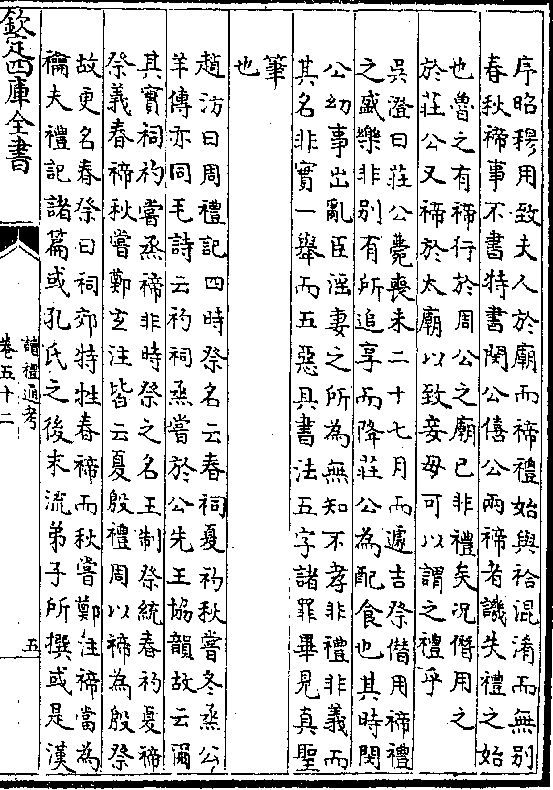 序昭穆用致夫人於廟而禘禮始與祫混淆而無别
春秋禘事不書特書閔公僖公兩禘者譏失禮之始
也魯之有禘行於周公之廟已非禮矣況僭用之
於莊公又禘於太廟以致妾母可以謂之禮乎
吳澄曰莊公薨喪未二十七月而遽吉祭僭用禘禮
之盛樂非别有所追享而降莊公為配食也其時閔
公幼事出亂臣淫妻之所為無知不孝非禮非義而
其名非實一舉而五惡具書法五字諸罪畢見真聖
筆
也
趙汸曰周禮記四時祭名云春祠夏礿秋嘗冬烝公
羊傳亦同毛詩云礿祠烝嘗於公先王協韻故云爾
其實祠礿嘗烝禘非時祭之名王制祭統春礿夏禘
祭義春禘秋嘗鄭玄注皆云夏殷禮周以禘為殷祭
故更名春祭曰祠郊特牲春禘而秋嘗鄭注禘當為
禴夫禮記諸篇或孔氏之後末流弟子所撰或是漢
欽定四庫全書
讀禮通考
卷五十二
五